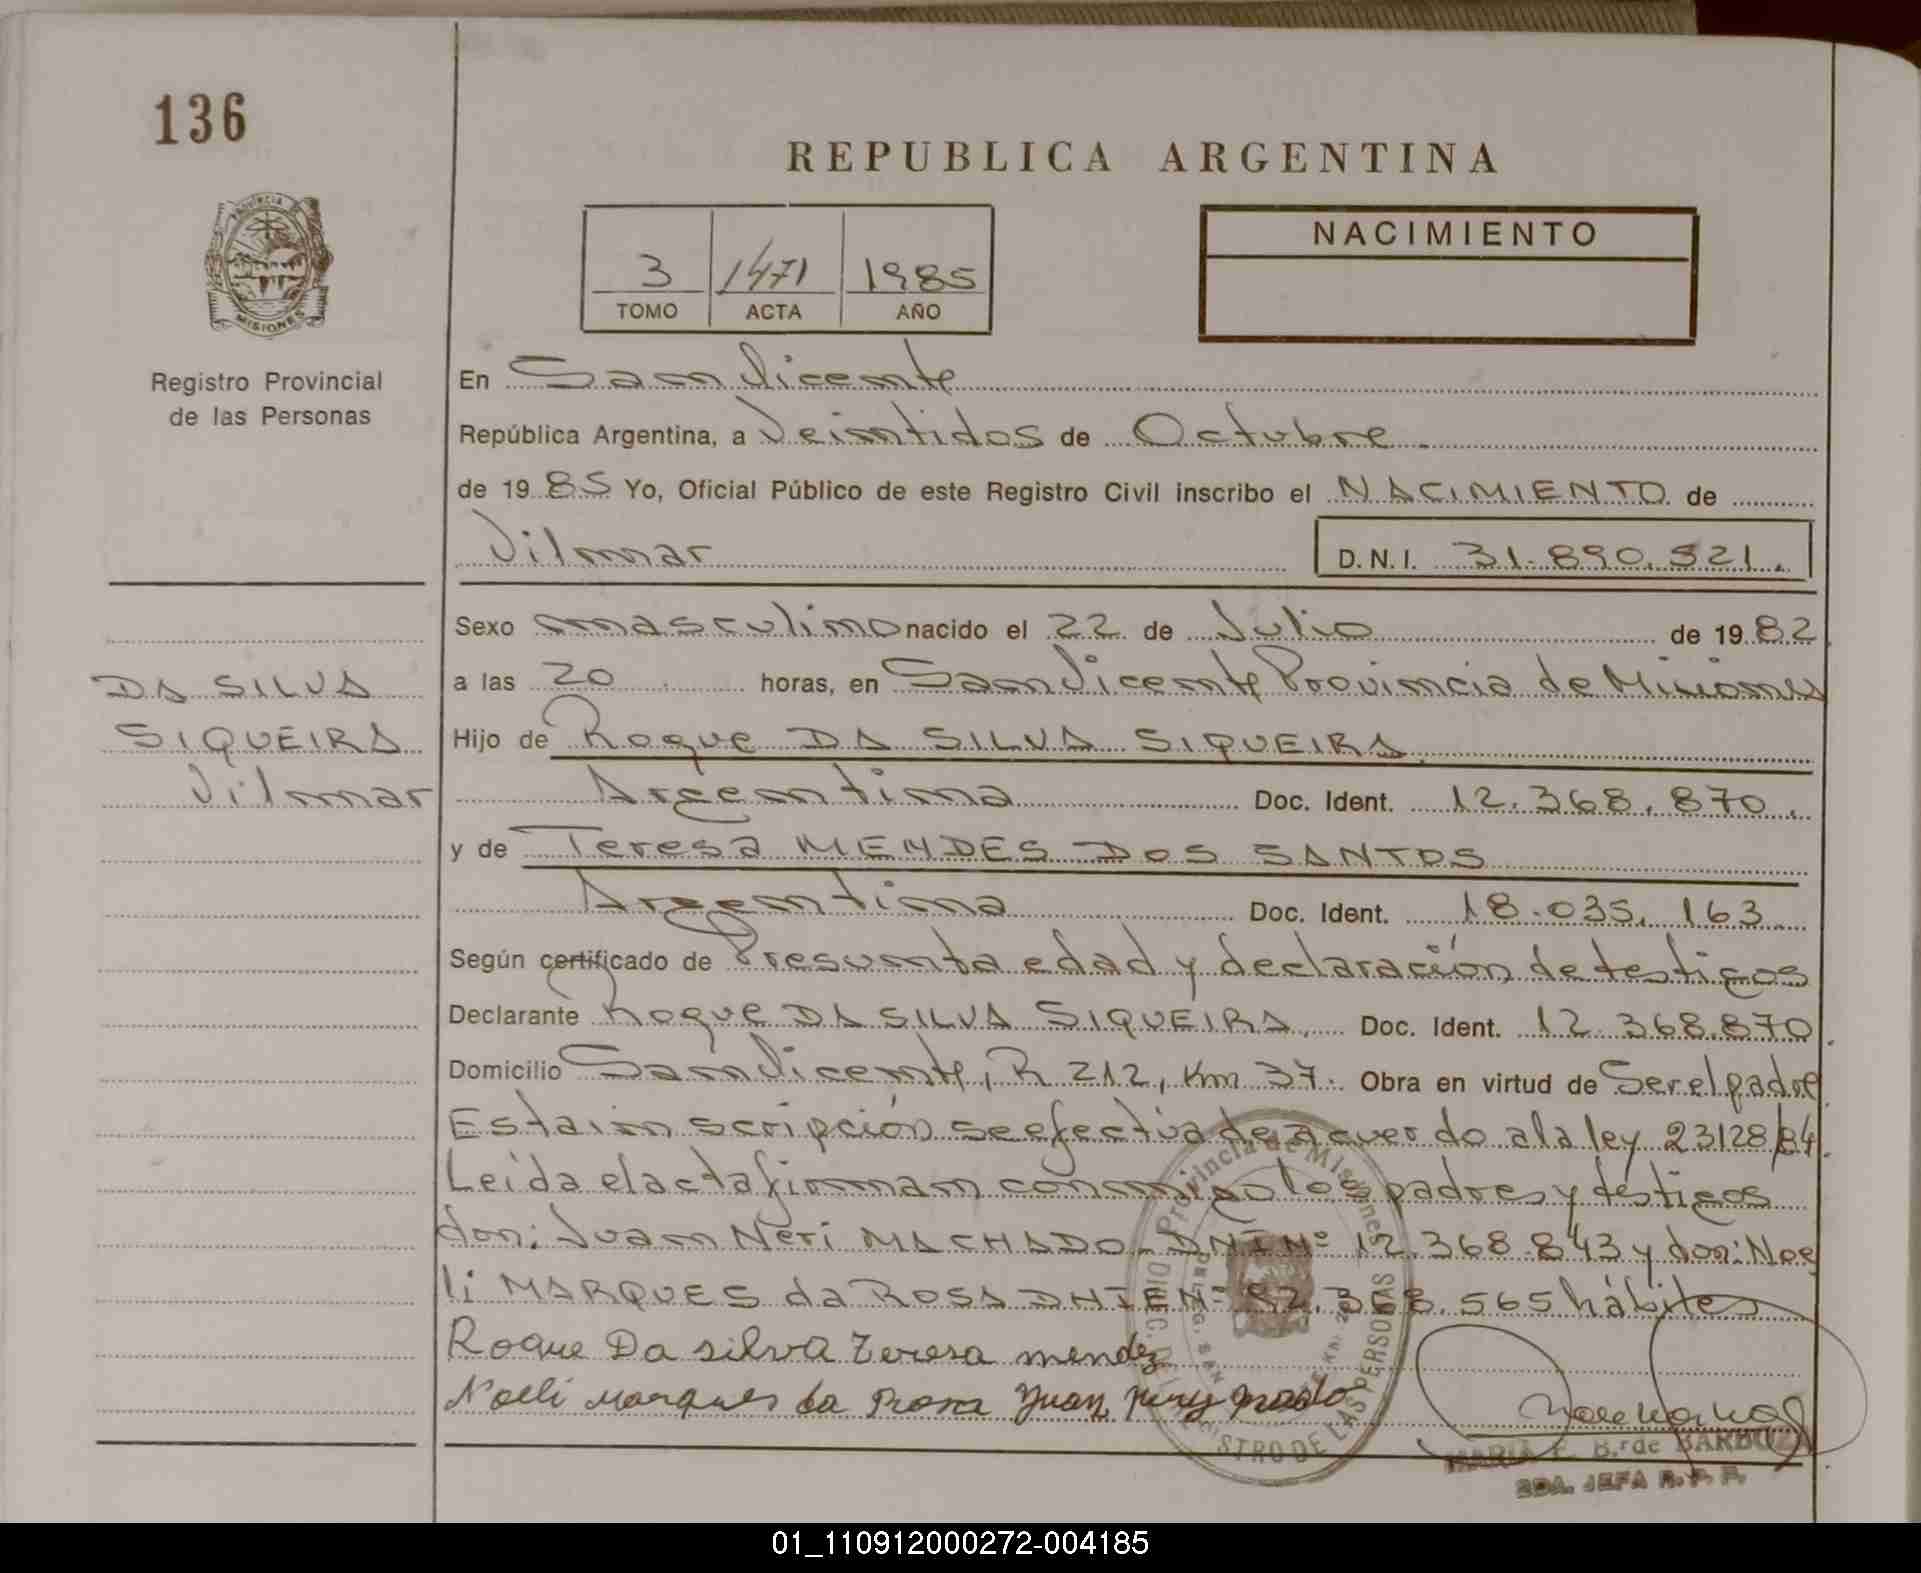 136
REPUBLICA ARGENTINA
PROVINCIA DE MISIONES
3 1471 1985
TOMO ACTA AÑO
NACIMIENTO
Registro Provincial
de las Personas
En San Vicente
República Argentina, a Veintidos de Octubre
de 1985 Yo, Oficial Público de este Registro Civil inscribo el NACIMIENTO de
Vilmar
D.N.I. 31.890.521.
Sexo masculino nacido el 22 de Julio de 1982
a las 20 horas, en San Vicente Provincia de Misiones
DA SILVA
SIQUEIRA
Vilmar
Hijo de Roque DA SILVA SIQUEIRA
Argentina Doc. Ident. 12.368.870.
y de Teresa MENDES DOS SANTOS
Argentina Doc. Ident. 18.035.163
Según certificado de Presunta edad y declaración de testigos
Declarante Roque DA SILVA SIQUEIRA, Doc. Ident. 12.368.870
Domicilio San Vicente, R 212, Km 37. Obra en virtud de Ser el padre
Esta inscripción se efectiva de acuerdo a la ley 23128/84.
Leida el acta firman conmigo los padres y testigos
don: Juan Neri MACHADO DNI Nº 12.368.843 y don: Noe
li MARQUES da ROSA 368.565 hábiles
Roque Da silva Teresa mendez
Noeli Marques da Rosa Juan
Provincia de Misiones
REGISTRO DE LAS PERSONAS
MARIA E. B. de BARBOZA
2DA. JEFA R. P. P.
01_110912000272-004185